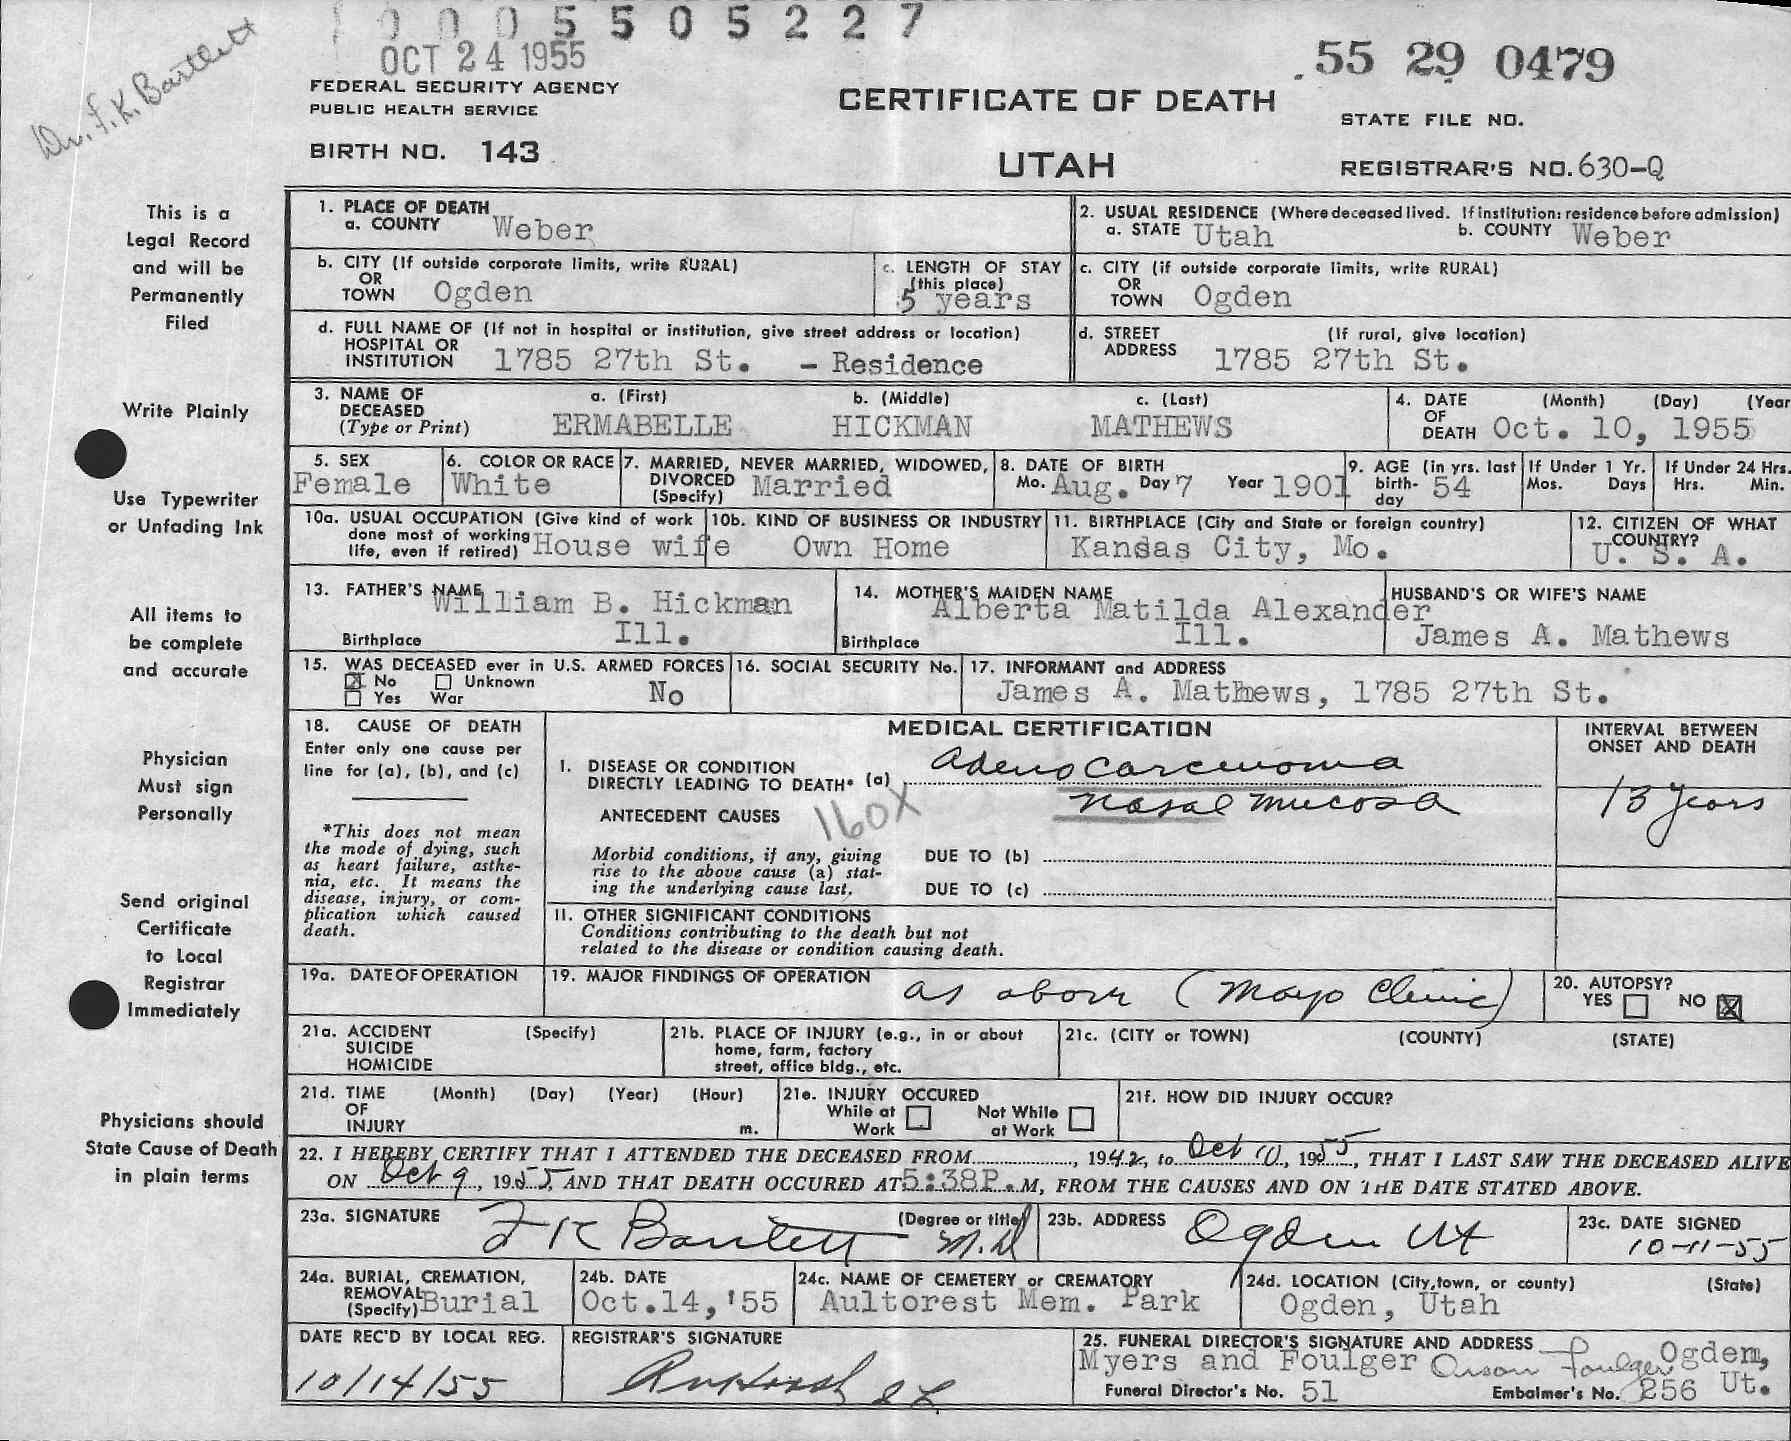 0005505227
OCT 24 1955
Dr. F. K. Bartlett
55 29 0479
FEDERAL SECURITY AGENCY
PUBLIC HEALTH SERVICE
CERTIFICATE OF DEATH
STATE FILE NO.
BIRTH NO. 143
UTAH
REGISTRAR'S NO. 630-Q
This is a
Legal Record
and will be
Permanently
Filed
Write Plainly
Use Typewriter
or Unfading Ink
All items to
be complete
and accurate
Physician
Must sign
Personally
Send original
Certificate
to Local
Registrar
Immediately
Physicians should
State Cause of Death
in plain terms
1. PLACE OF DEATH
a. COUNTY Weber
2. USUAL RESIDENCE (Where deceased lived. If institution: residence before admission)
a. STATE Utah b. COUNTY Weber
b. CITY (If outside corporate limits, write RURAL)
OR
TOWN Ogden
c. LENGTH OF STAY
(this place)
5 years
c. CITY (if outside corporate limits, write RURAL)
OR
TOWN Ogden
d. FULL NAME OF (If not in hospital or institution, give street address or location)
HOSPITAL OR
INSTITUTION 1785 27th St. - Residence
d. STREET (If rural, give location)
ADDRESS 1785 27th St.
3. NAME OF DECEASED (Type or Print)
a. (First) b. (Middle) c. (Last)
ERMABELLE HICKMAN MATHEWS
4. DATE OF DEATH (Month) (Day) (Year
Oct. 10, 1955
5. SEX
Female
6. COLOR OR RACE
White
7. MARRIED, NEVER MARRIED, WIDOWED,
DIVORCED (Specify) Married
8. DATE OF BIRTH
Mo. Aug. Day 7 Year 1901
9. AGE (in yrs. last
birth-
day 54
If Under 1 Yr.
Mos. Days
If Under 24 Hrs.
Hrs. Min.
10a. USUAL OCCUPATION (Give kind of work
done most of working
life, even if retired) House wife
10b. KIND OF BUSINESS OR INDUSTRY
Own Home
11. BIRTHPLACE (City and State or foreign country)
Kansas City, Mo.
12. CITIZEN OF WHAT
COUNTRY?
U. S. A.
13. FATHER'S NAME
William B. Hickman
Birthplace Ill.
14. MOTHER'S MAIDEN NAME
Alberta Matilda Alexander
Birthplace Ill.
HUSBAND'S OR WIFE'S NAME
James A. Mathews
15. WAS DECEASED ever in U.S. ARMED FORCES
No Unknown
Yes War No
16. SOCIAL SECURITY No.
17. INFORMANT and ADDRESS
James A. Mathews, 1785 27th St.
18. CAUSE OF DEATH
Enter only one cause per
line for (a), (b), and (c)
*This does not mean
the mode of dying, such
as heart failure, asthe-
nia, etc. It means the
disease, injury, or com-
plication which caused
death.
MEDICAL CERTIFICATION
I. DISEASE OR CONDITION
DIRECTLY LEADING TO DEATH* (a) Adenocarcinoma
nasal mucosa
ANTECEDENT CAUSES
160X
Morbid conditions, if any, giving
rise to the above cause (a) stat-
ing the underlying cause last.
DUE TO (b)
DUE TO (c)
II. OTHER SIGNIFICANT CONDITIONS
Conditions contributing to the death but not
related to the disease or condition causing death.
INTERVAL BETWEEN
ONSET AND DEATH
13 years
19a. DATE OF OPERATION
19. MAJOR FINDINGS OF OPERATION
as above (Mayo Clinic)
20. AUTOPSY?
YES NO
21a. ACCIDENT (Specify)
SUICIDE
HOMICIDE
21b. PLACE OF INJURY (e.g., in or about
home, farm, factory
street, office bldg., etc.
21c. (CITY or TOWN) (COUNTY) (STATE)
21d. TIME (Month) (Day) (Year) (Hour)
OF
INJURY m.
21e. INJURY OCCURED
While at Work Not While at Work
21f. HOW DID INJURY OCCUR?
22. I HEREBY CERTIFY THAT I ATTENDED THE DECEASED FROM , 1942, to Oct 10, 1955, THAT I LAST SAW THE DECEASED ALIVE
ON Oct 9, 1955, AND THAT DEATH OCCURED AT 5:38P.M, FROM THE CAUSES AND ON THE DATE STATED ABOVE.
23a. SIGNATURE (Degree or title)
F K Bartlett M.D
23b. ADDRESS
Ogden Ut
23c. DATE SIGNED
10-11-55
24a. BURIAL, CREMATION,
REMOVAL
(Specify) Burial
24b. DATE
Oct.14,'55
24c. NAME OF CEMETERY or CREMATORY
Aultorest Mem. Park
24d. LOCATION (City, town, or county) (State)
Ogden, Utah
DATE REC'D BY LOCAL REG.
10/14/55
REGISTRAR'S SIGNATURE
25. FUNERAL DIRECTOR'S SIGNATURE AND ADDRESS
Myers and Foulger Orson Foulger Ogden, Ut.
Funeral Director's No. 51 Embalmer's No. 256